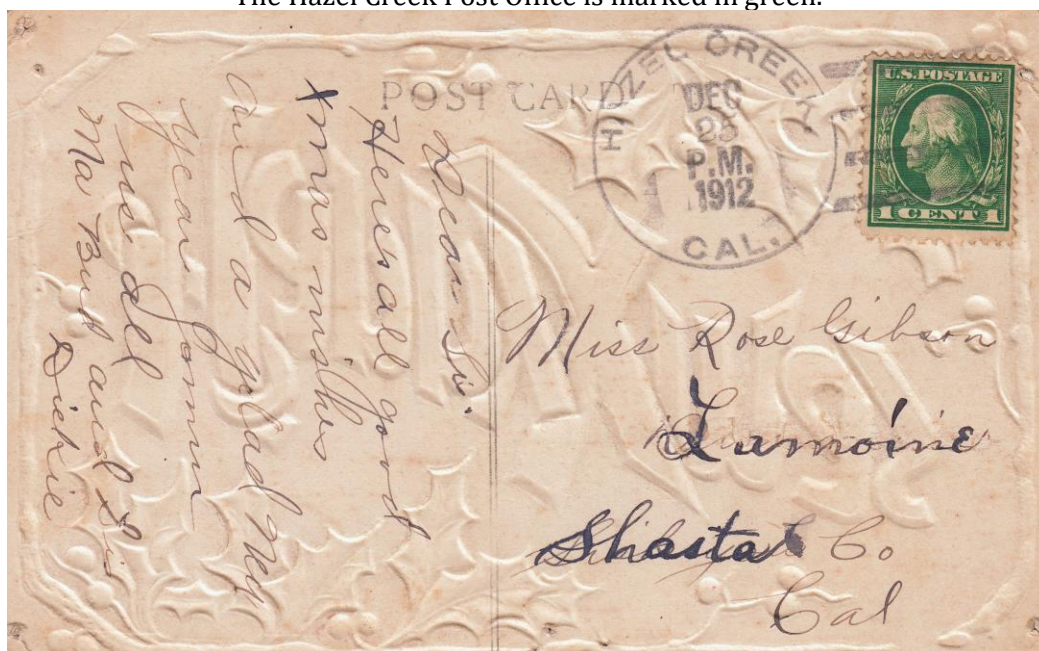 The Hazel Creek Post Office is marked in green.
POST CARD
HAZEL CREEK
DEC
P.M.
1912
CAL.
U.S. POSTAGE
1 CENT 1
Dear Sis.
Heres all good
Xmas wishes
and a glad New
Year from
us all
Ma Bud and Sis
Dickie
Miss Rose Gibson
Lamoine
Shasta Co
Cal